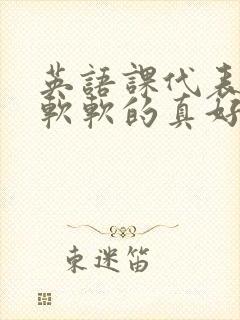 英語課代表
軟軟的真好
束迷笛